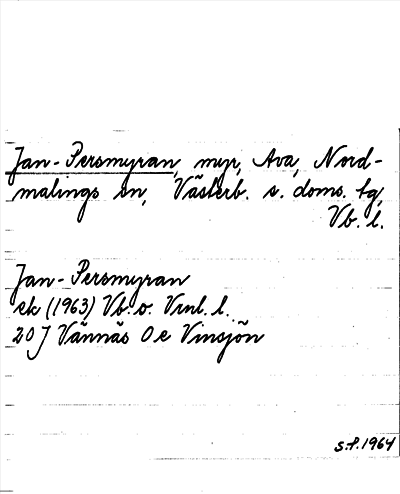 Jan-Persmyran, myr, Ava, Nord-
malings sn, Västerb. s. doms. tg,
Vb. l.
Jan-Persmyran
ek (1963) Vb. o. Vrml. l.
20 J Vännäs 0 e Vinsjön
S.P. 1964